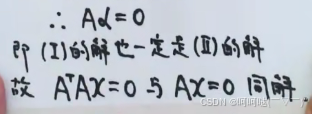 ∴ Aα=0
即 (I)的解也一定是(II)的解
故 AᵀAX=0 与 AX=0 同解